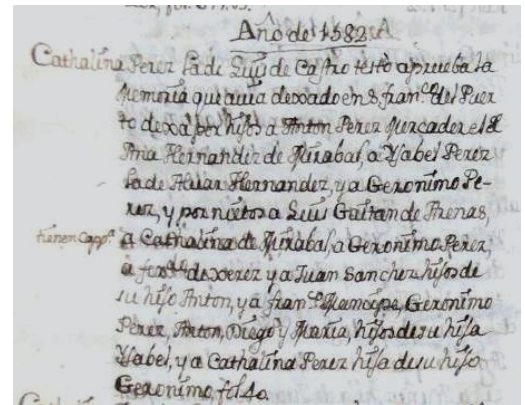 Año de 1582 A
Cathalina Perez la de Luis de Castro testó aprueba la
Memoria que avia dexado en S. franco. del Puer
to dexa por hijos a Anton Perez Mercader el de
Ana Hernandez de Mirabal, a Ysabel Perez
la de Alvar Hernandez, y a Geronimo Pe-
rez, y por nietos a Luis Gaitan de Arenas,
tienen Capp.
a Cathalina de Mirabal, a Geronimo Perez,
a de xerez y a Juan Sanchez hijos de
su hijo Anton, y a fran.co Geronimo
Perez, Anton, Diego y Maria, hijos de su hija
Ysabel, y a Cathalina Perez hija de su hijo
Geronimo, fol. 40.